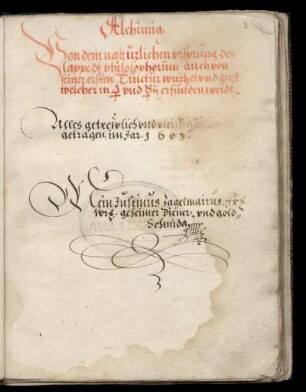 Alchimia
Von dem natürlichen ursprung des
lappedz philosophorum auch von
seintz ersten Tinctur wurtzel und geist
welcher in ♀ und erfunden wirdt
Alles getrewlich und vleissig
getragen im Jar. 1603.
Mein Justinus
geheimer Diener, und gold
Schmidt
3